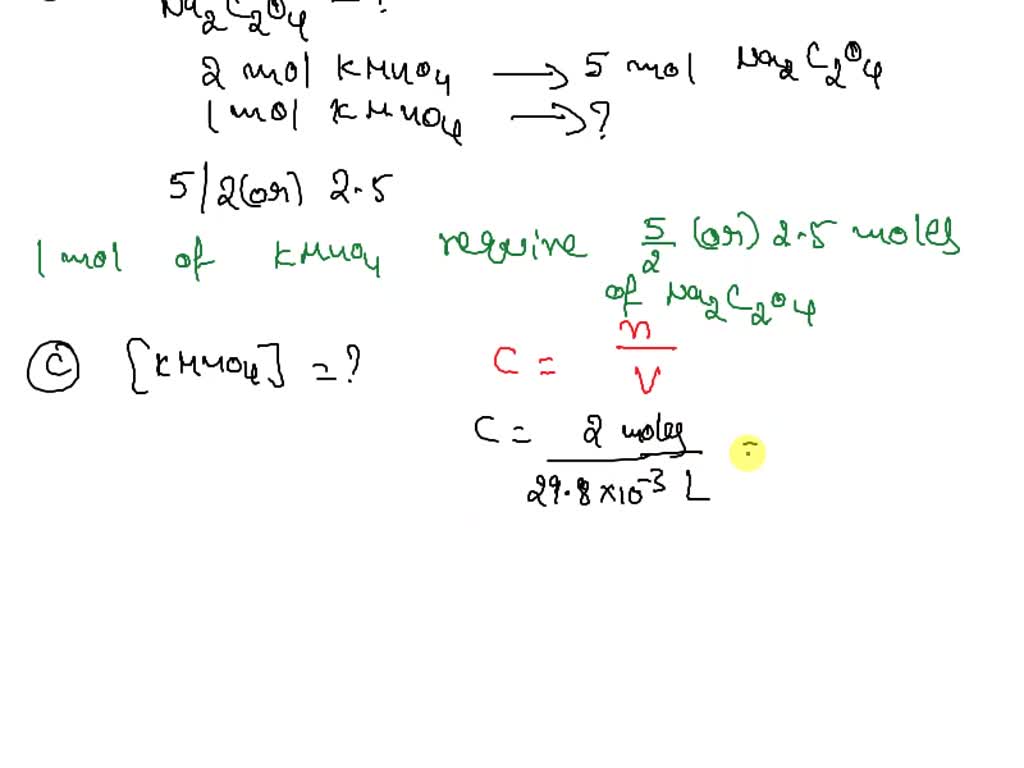 Na2C2O4 = ?
2 mol KMnO4 → 5 mol Na2C2O4
1 mol KMnO4 → ?
5/2 (or) 2.5
1 mol of KMnO4 require 5/2 (or) 2.5 moles
of Na2C2O4
C [KMnO4] = ? C = n/V
C = 2 moles / 29.8×10-3 L =